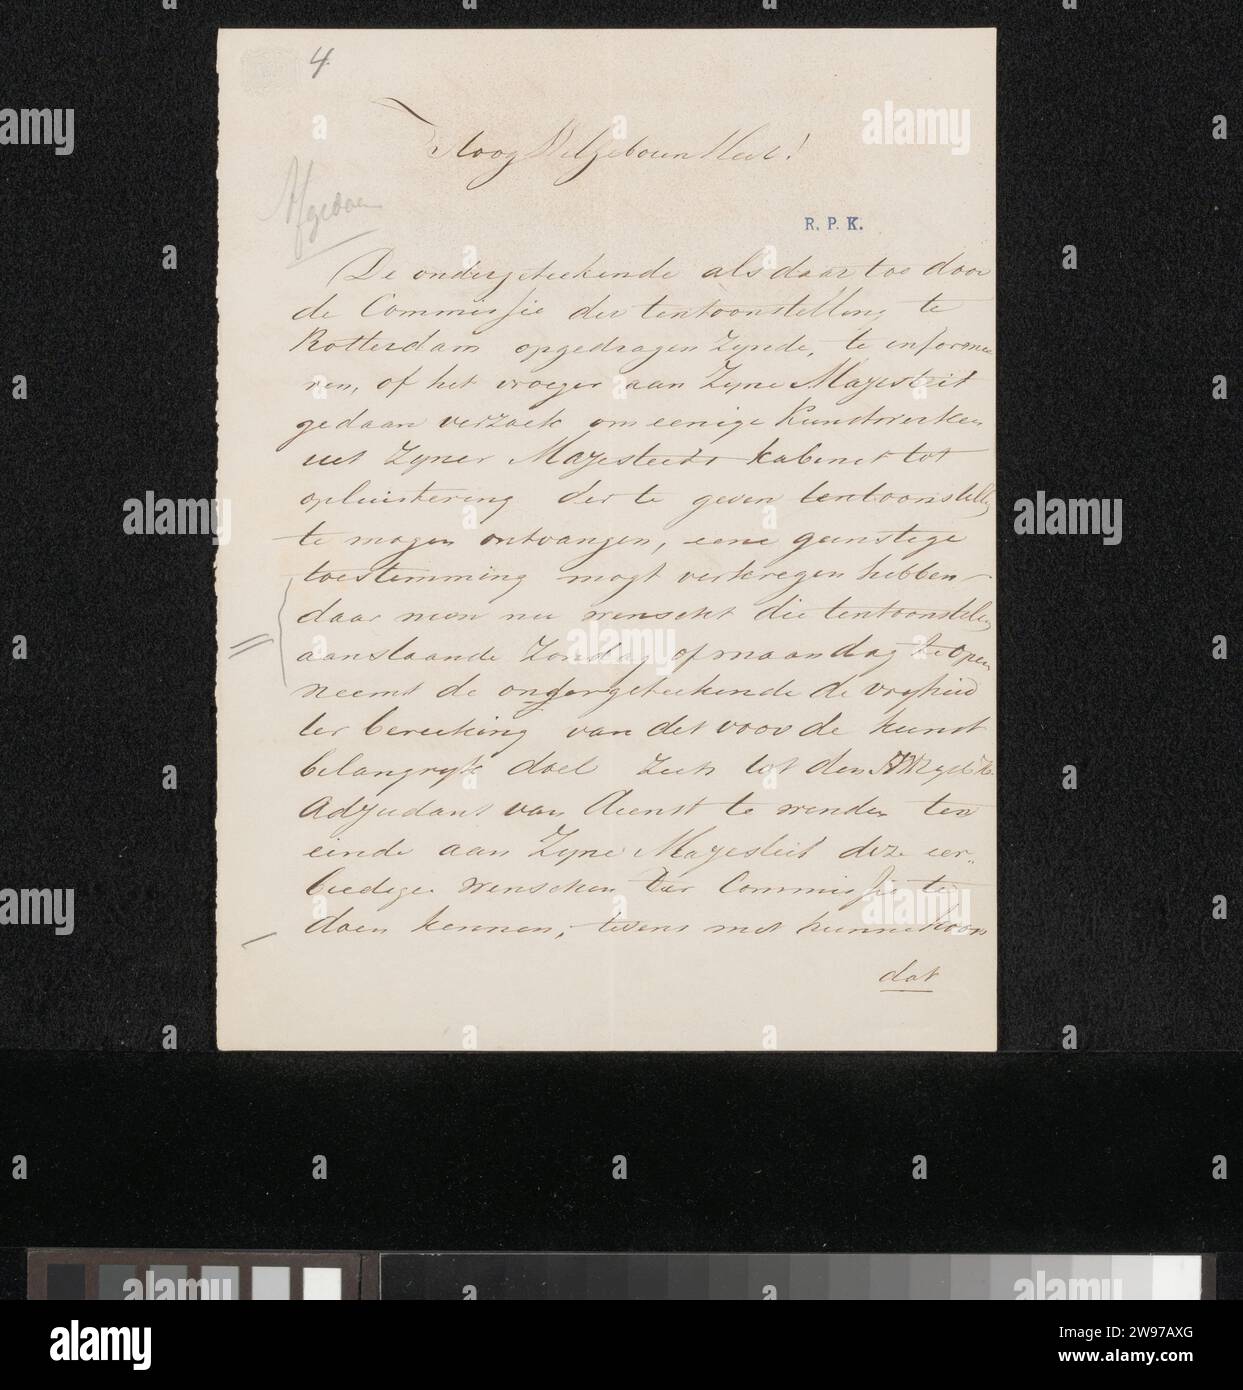 4
Hoog Welgeboren Heer!
Afgedaan
R. P. K.
De ondergeteekende als daar toe door
de Commissie der tentoonstelling te
Rotterdam opgedragen Zynde, te informee
ren, of het vroeger aan Zyne Majesteit
gedaan verzoek om eenige Kunstwerken
uit Zyner Majesteits kabinet tot
opluistering der te geven tentoonstelling
te mogen ontvangen, eene gunstige
toestemming mogt verkregen hebben
daar men nu wenscht die tentoonstelling
aanstaande Zondag of maandag te open
neemt de ondergeteekende de vryheid
ter bereiking van det voor de kunst
belangryk doel zich tot den
Adjudant van dienst te wenden ten
einde aan Zyne Majesteit deze eer
biedige wenschen der Commissie te
doen kennen, tevens met hunne hoop
dat
alamy
alamy
Image ID: 2W97AXG
www.alamy.com